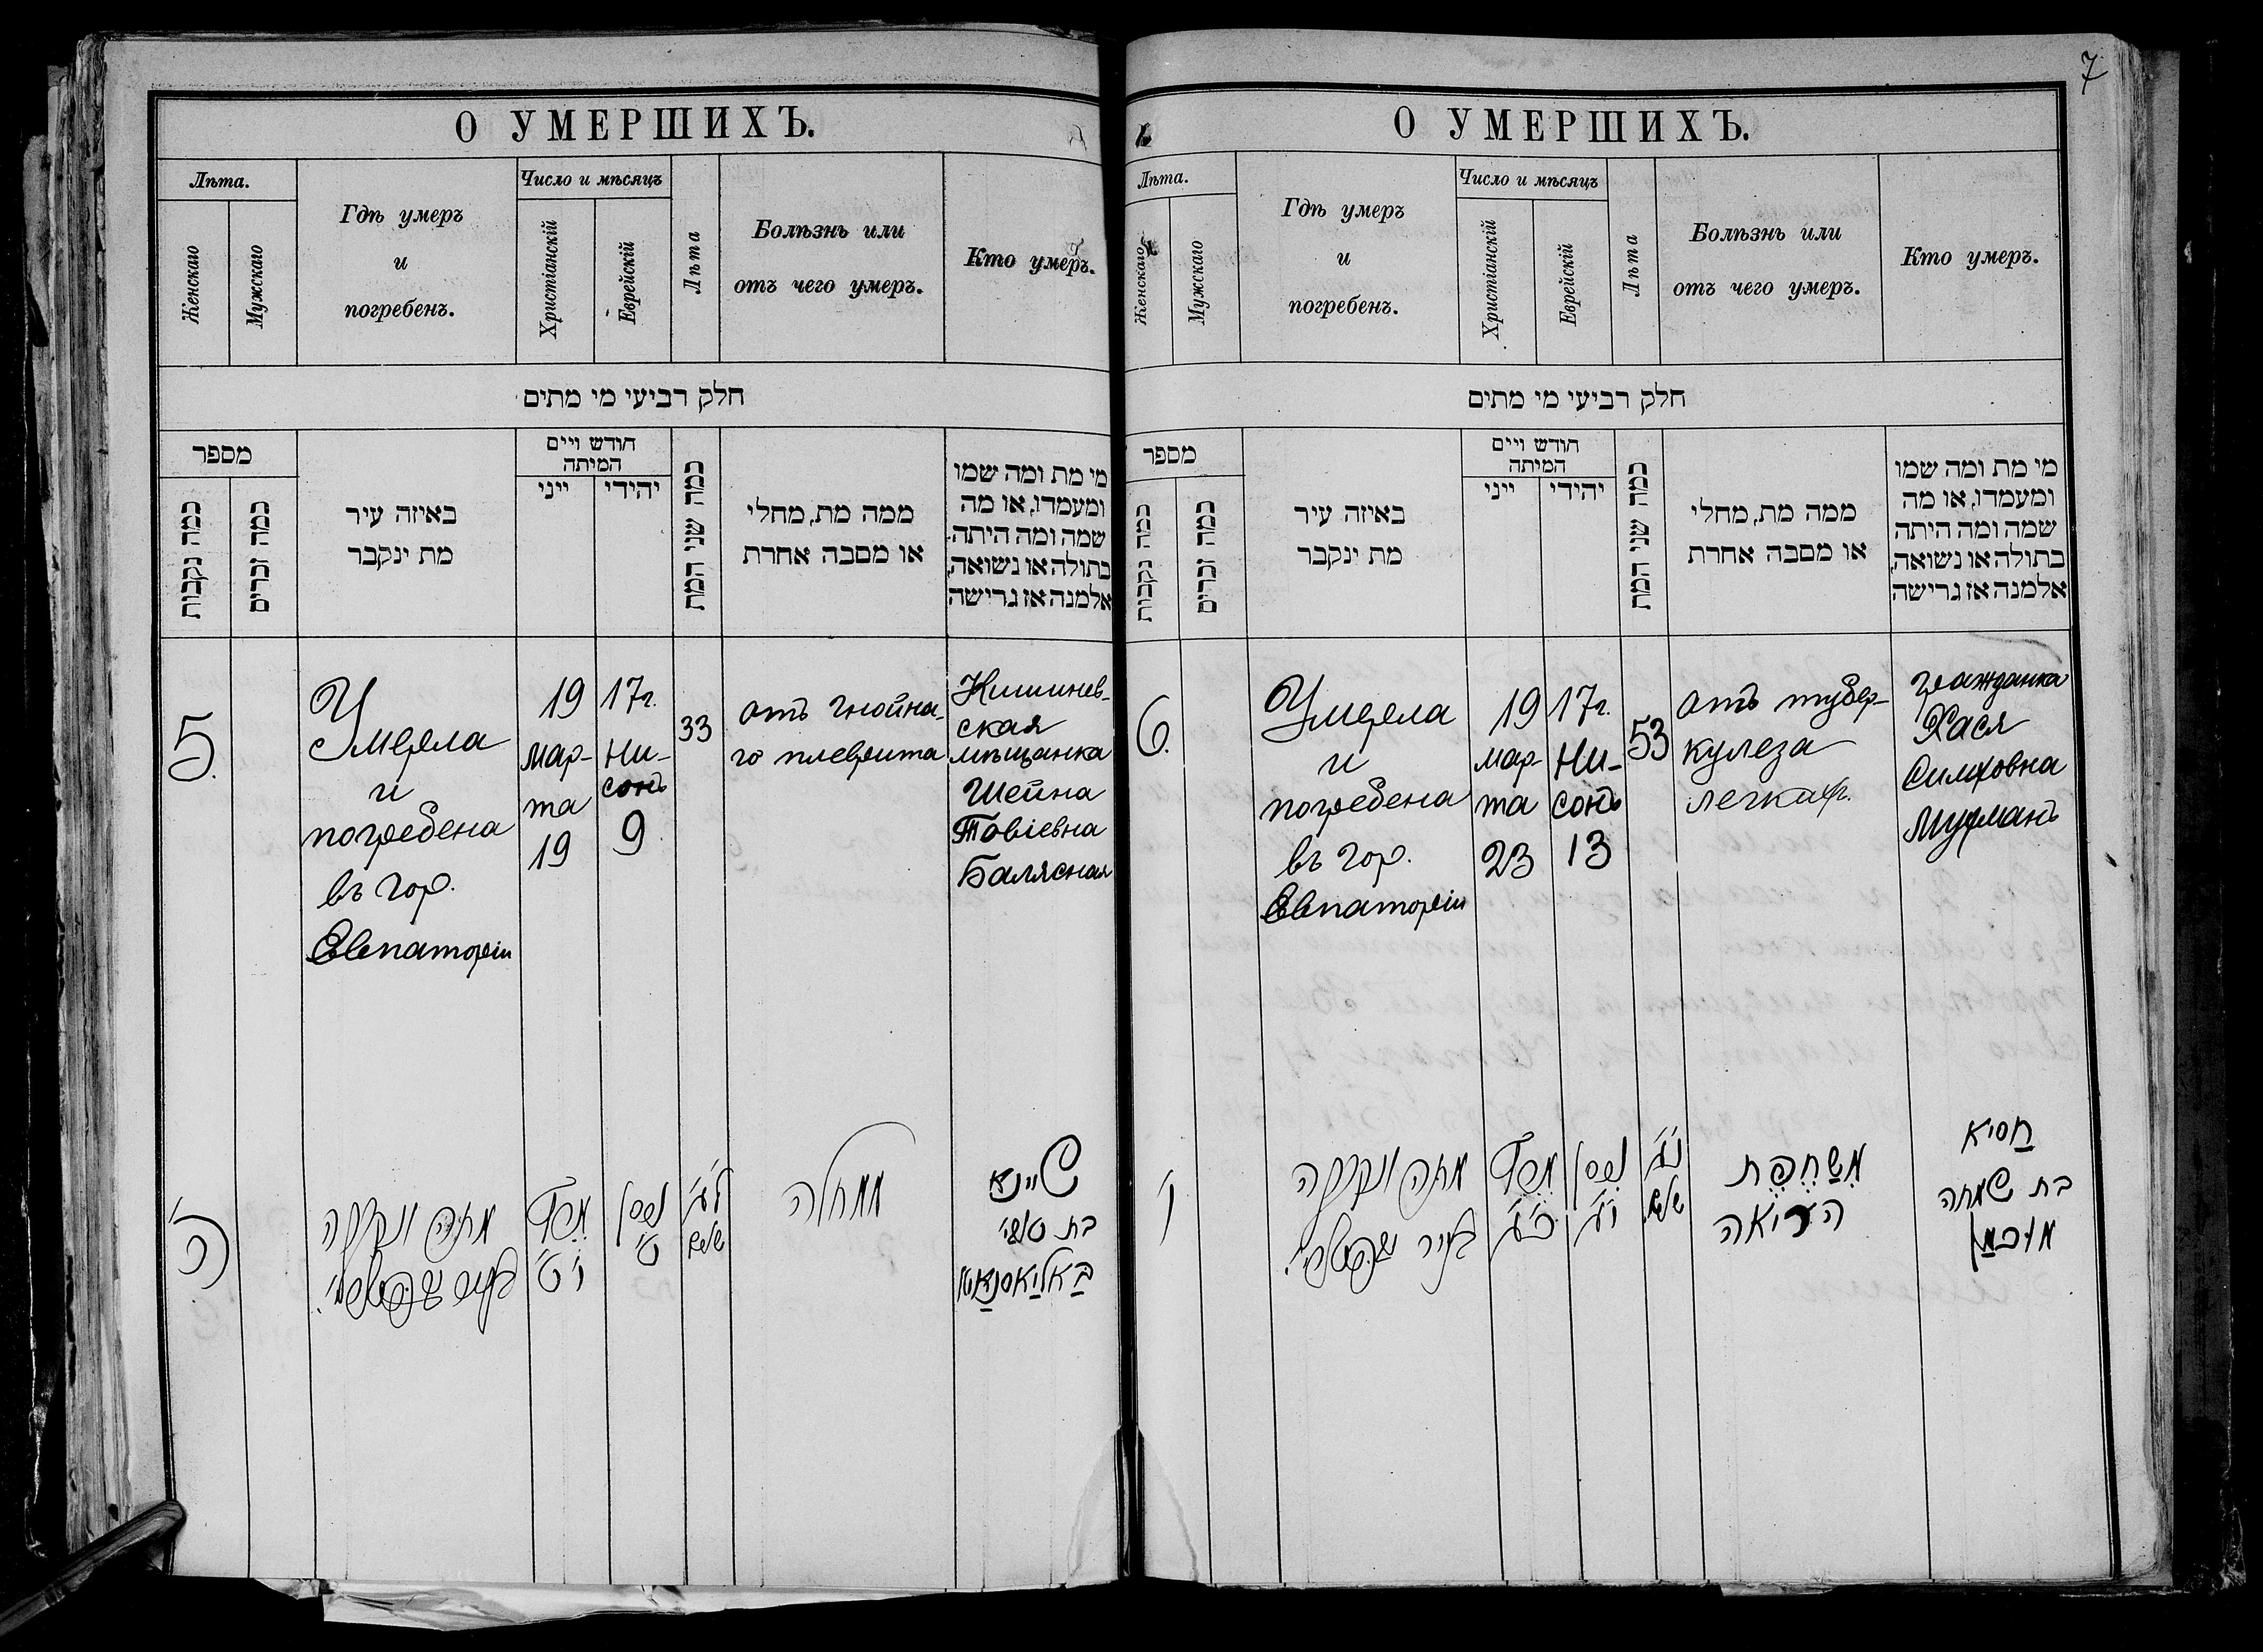 7
О УМЕРШИХЪ.
Лѣта.
Женскаго
Мужскаго
Гдѣ умеръ
и
погребенъ.
Число и мѣсяцъ
Христіанскій
Еврейскій
Лѣта
Болѣзнь или
отъ чего умеръ.
Кто умеръ.
חלק רביעי מי מתים
מספר
כמה נקבות
כמה זכרים
באיזה עיר
מת ינקבר
חודש ויים
המיתה
ייני
יהידי
כמה שני המת
ממה מת, מחלי
או מסבה אחרת
מי מת ומה שמו
ומעמדו, או מה
שמה ומה היתה
בתולה או נשואה,
אלמנה אז גרישה
5.
Умерла
и
погребена
въ гор.
Евпаторіи
19
мар-
та
19
17г.
Ни-
сонъ
9
33
отъ гнойна-
го плеврита
Кишинев-
ская
мѣщанка
Шейна
Товіевна
Балясная
ה'
מתה ונקברה
י"ט
ניסן
ט'
ל"ג
שנים
ממחלה
שיינא
בת טובי'
באליאסנאיא
О УМЕРШИХЪ.
Лѣта.
Женскаго
Мужскаго
Гдѣ умеръ
и
погребенъ.
Число и мѣсяцъ
Христіанскій
Еврейскій
Лѣта
Болѣзнь или
отъ чего умеръ.
Кто умеръ.
חלק רביעי מי מתים
מספר
כמה נקבות
כמה זכרים
באיזה עיר
מת ינקבר
חודש ויים
המיתה
ייני
יהידי
כמה שני המת
ממה מת, מחלי
או מסבה אחרת
מי מת ומה שמו
ומעמדו, או מה
שמה ומה היתה
בתולה או נשואה,
אלמנה אז גרישה
6.
Умерла
и
погребена
въ гор.
Евпаторіи
19
мар-
та
23
17г.
Ни-
сонъ
13
53
отъ тубер-
кулеза
легкихъ.
гражданка
Хася
Симховна
Муфманъ
ו'
מתה ונקברה
בעיר
כ"ג
ניסן
י"ג
נ"ג
שנים
משחפת
הריאה
חסיא
בת שמחה
מופמן